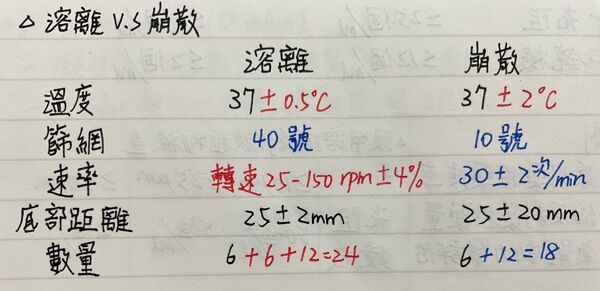 △ 溶離 V.S 崩散
溶離 崩散
溫度 37 ± 0.5°C 37 ± 2°C
篩網 40 號 10 號
速率 轉速 25-150 rpm ± 4% 30 ± 2次/min
底部距離 25 ± 2mm 25 ± 20 mm
數量 6 + 6 + 12 = 24 6 + 12 = 18